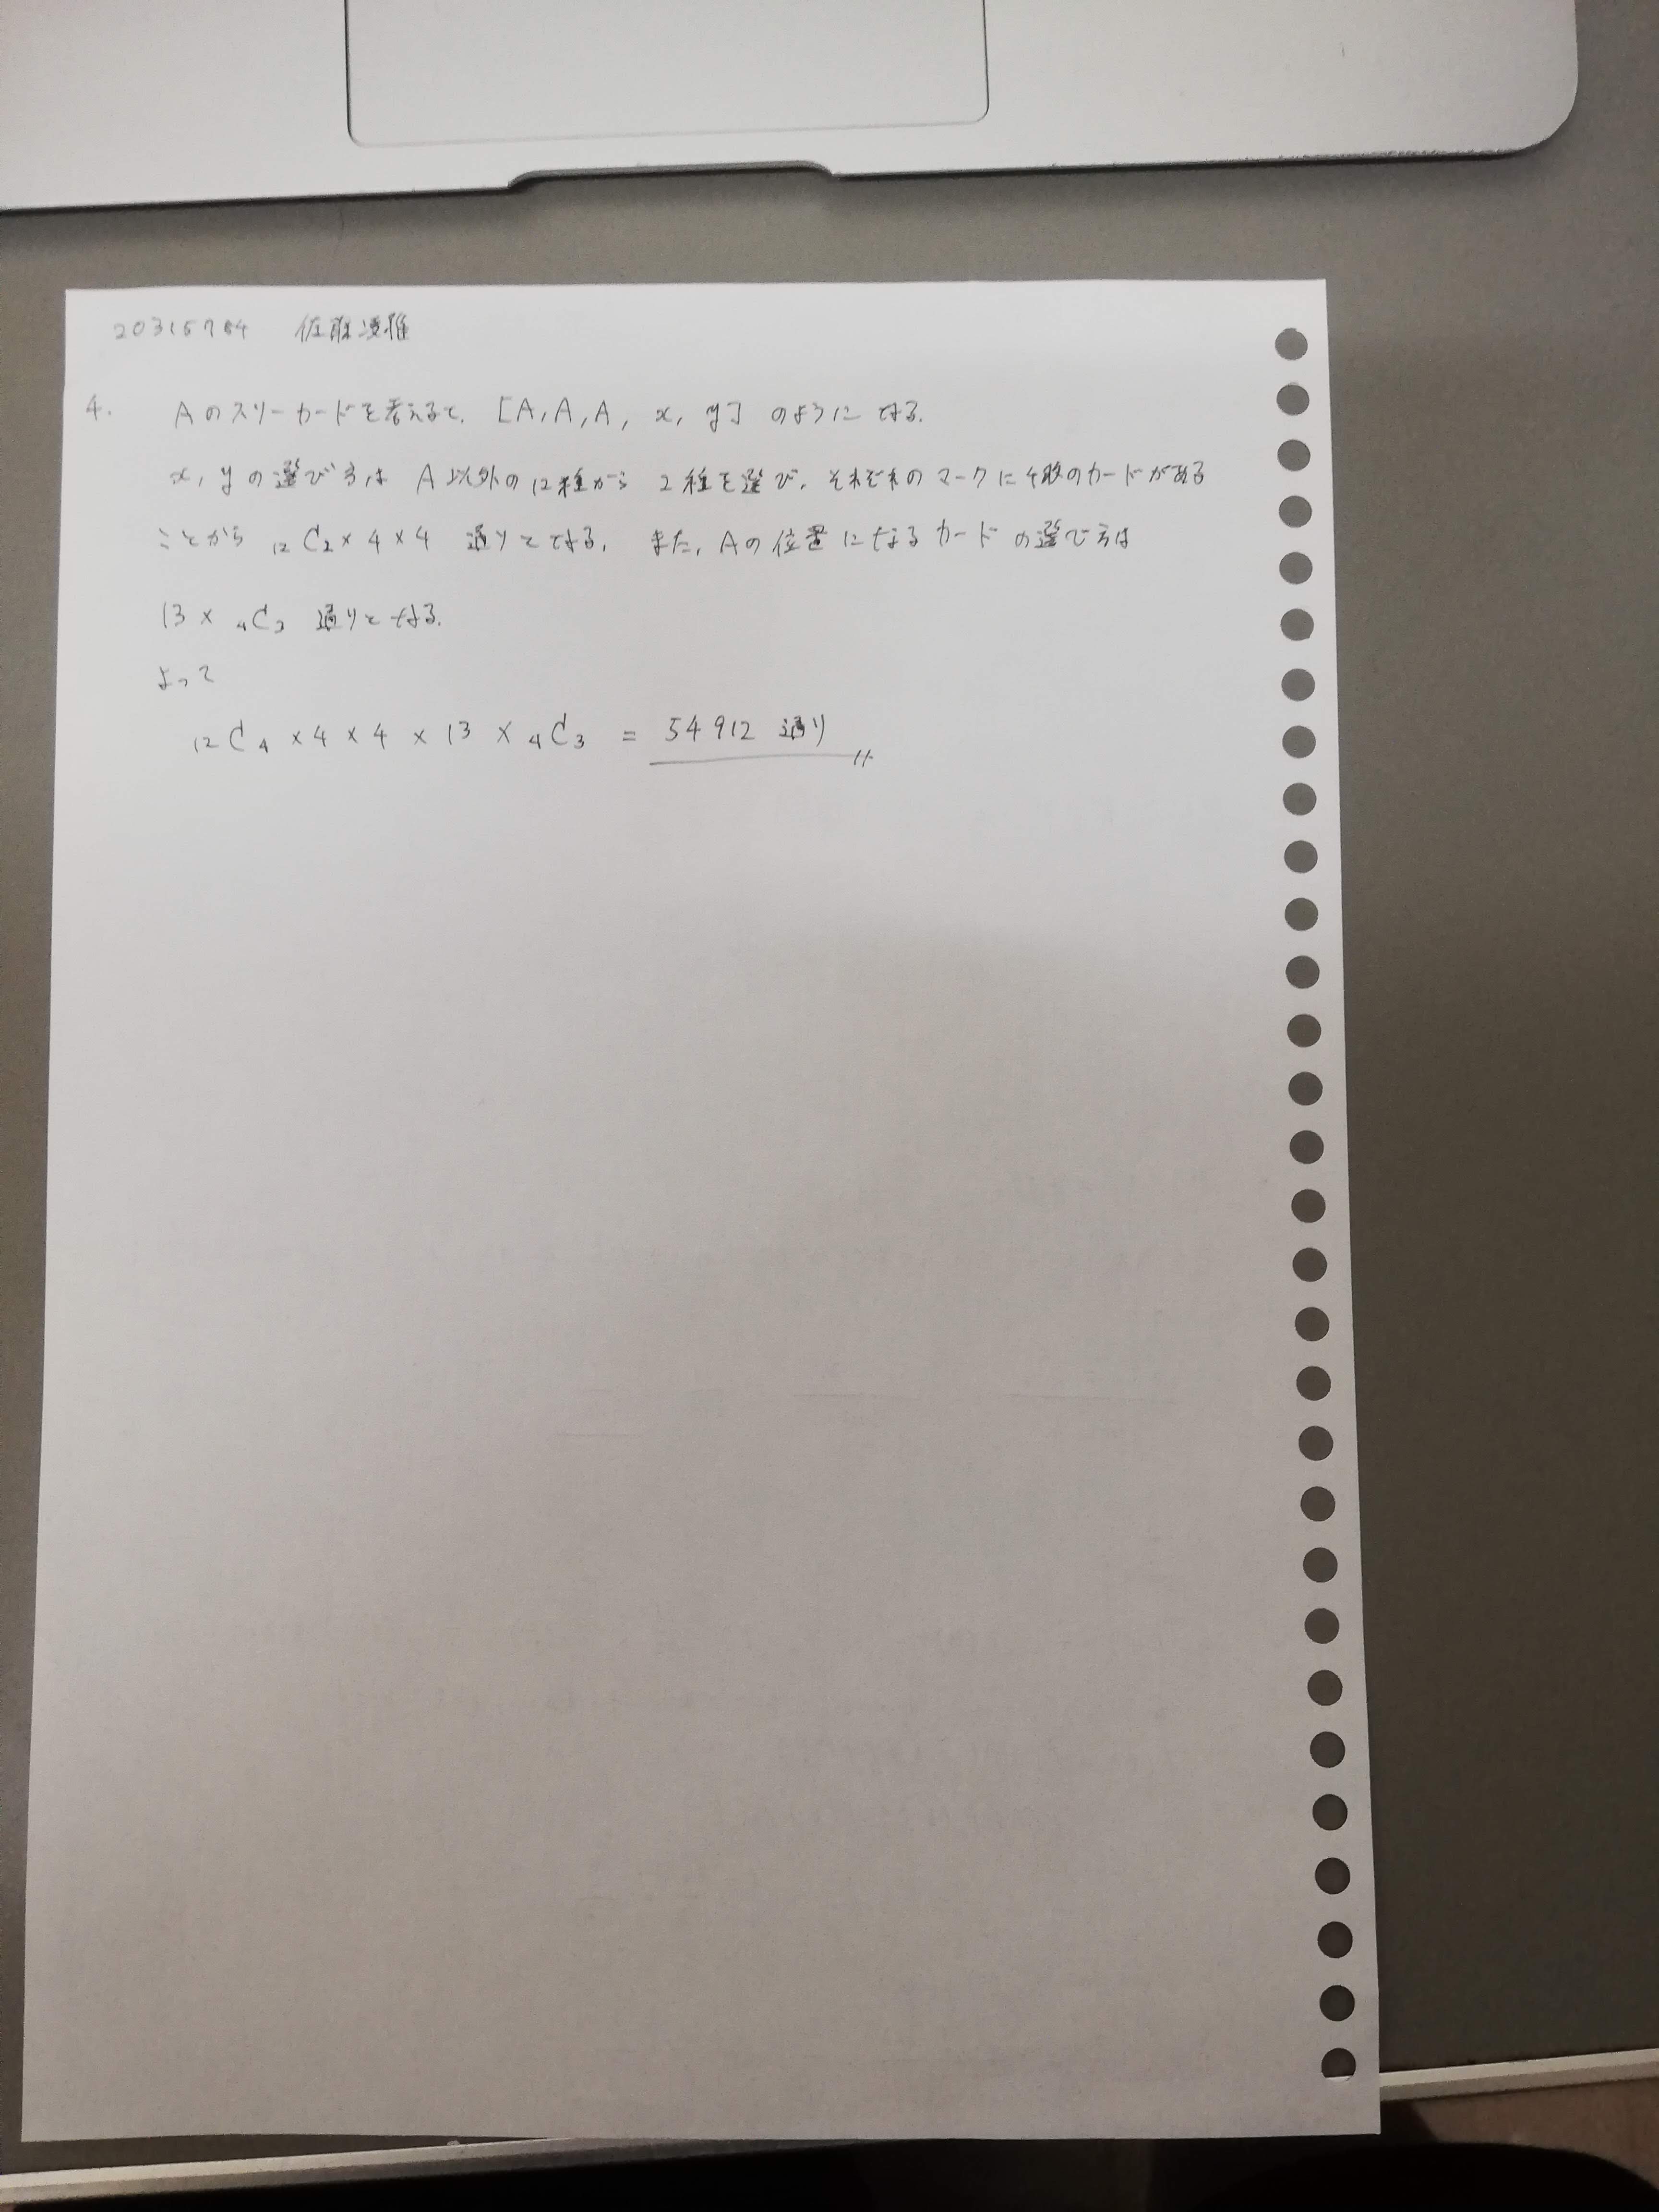 20315784 佐藤凌雅
4. Aのスリーカードを考えると、[A, A, A, x, y] のようになる.
x, yの選び方は A以外の12種から 2種を選び, それぞれのマークに4枚のカードがある
ことから ₁₂C₂ × 4 × 4 通りとなる. また, Aの位置になるカードの選び方は
13 × ₄C₃ 通りとなる.
よって
₁₂C₄ × 4 × 4 × 13 × ₄C₃ = 54912 通り